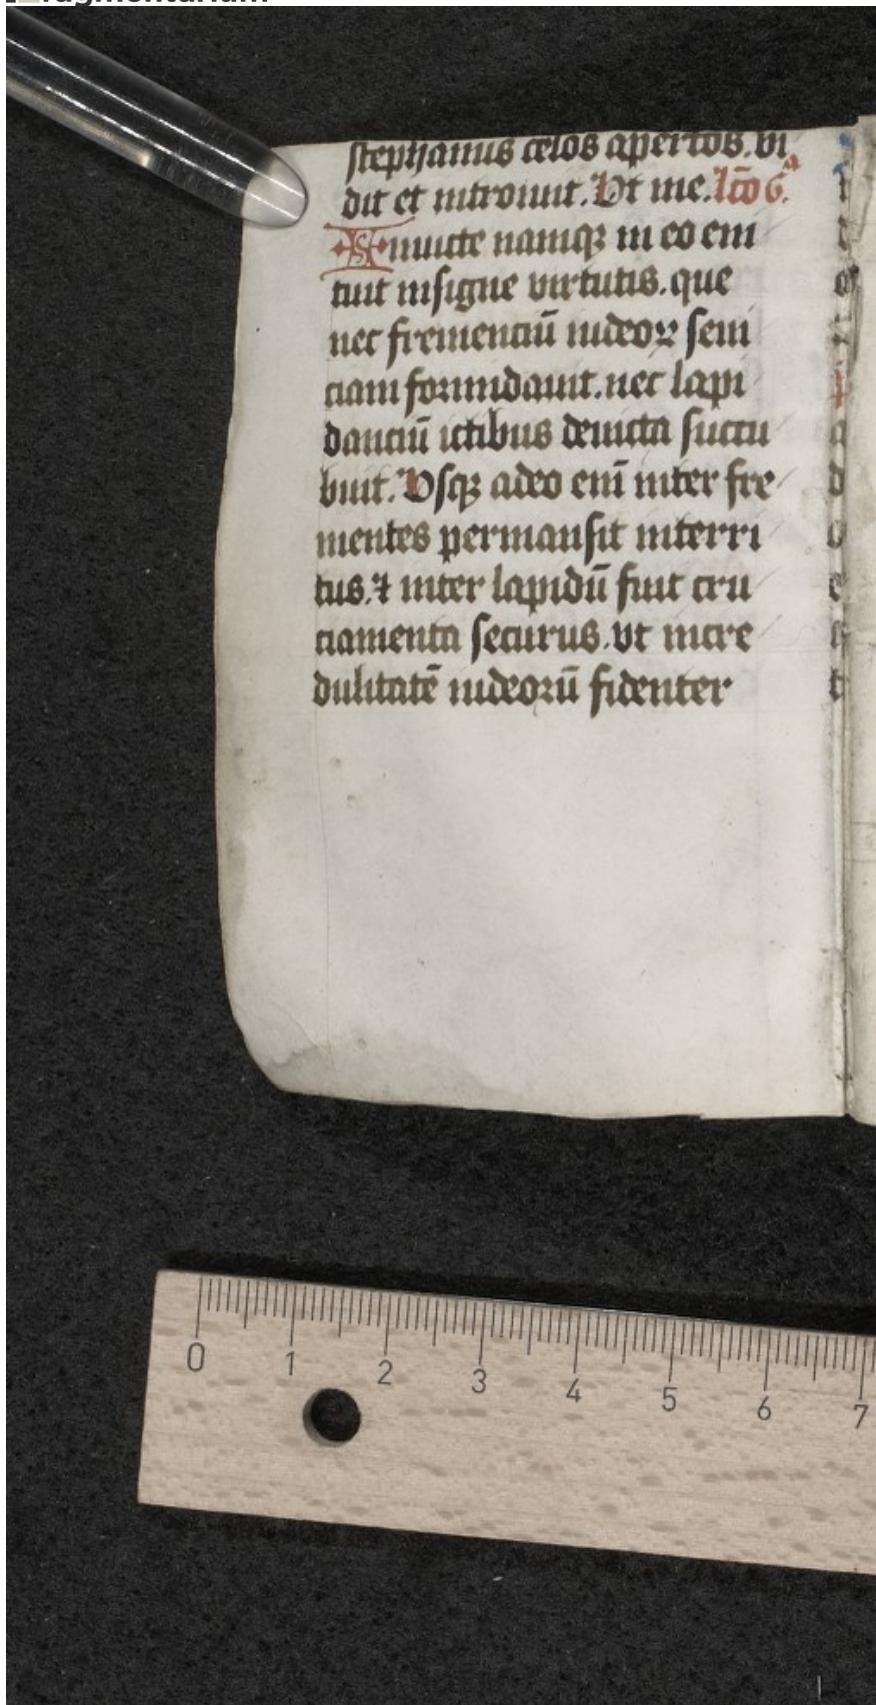 ragmentarium
stephanus celos apertos. vi
dit et introiuit. Vt me. lc̄o 6.ª
Inuicte namqꝫ in eo emi
tuit insigne virtutis. que
nec fremenciū iudeoꝝ seui
ciam formidauit. nec lapi
danciū ictibus deuicta succu
buit. Vsqꝫ adeo eni͞ inter fre
mentes permansit interri
tus. ⁊ inter lapidū fuit cru
ciamenta securus. vt incre
dulitatē iudeorū fidenter
0 1 2 3 4 5 6 7